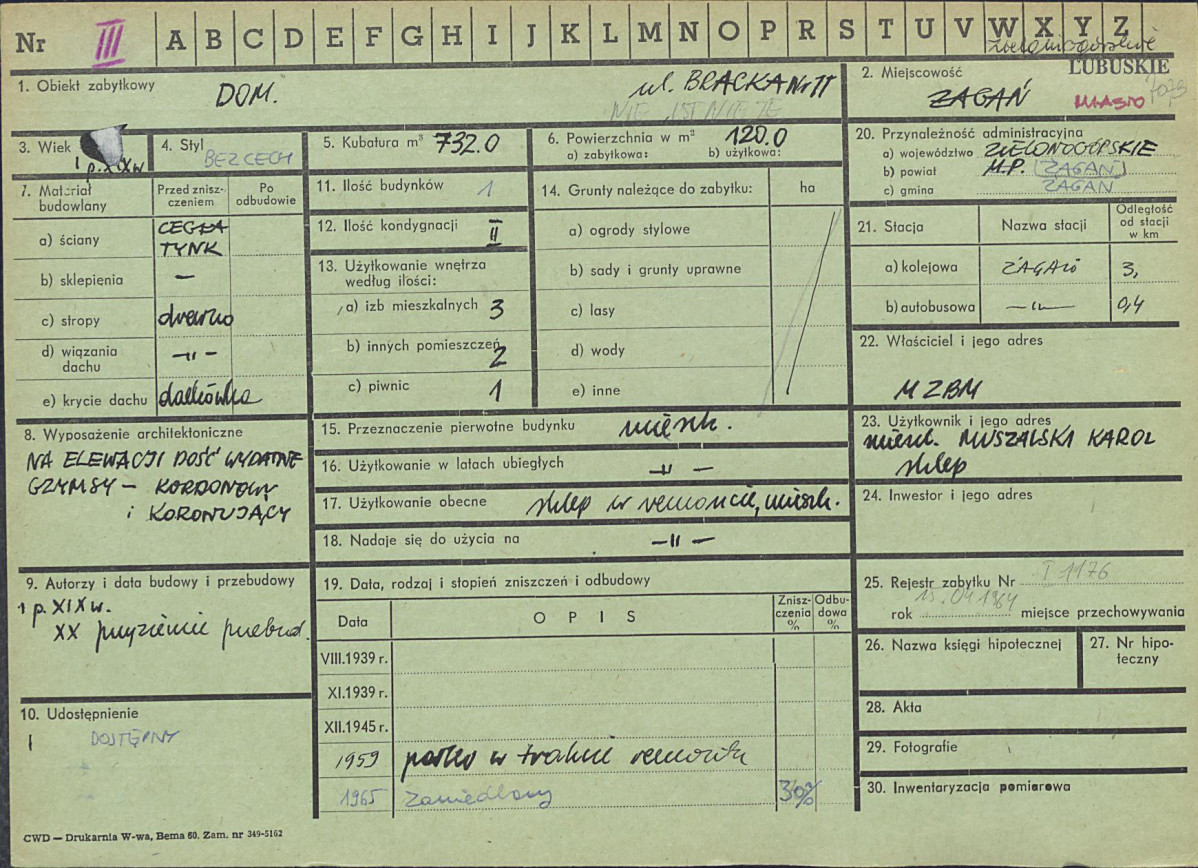 Nr III A B C D E F G H I J K L M N O P R S T U V W X Y Z
zielonogórskie
LUBUSKIE
1. Obiekt zabytkowy DOM. ul. BRACKA Nr 11
NIE ISTNIEJE
2. Miejscowość
ŻAGAŃ MIASTO
3. Wiek
1 p. XIX w
4. Styl
BEZ CECH
5. Kubatura m³ 732.0
6. Powierzchnia w m² 120.0
a) zabytkowa: b) użytkowa:
20. Przynależność administracyjna
a) województwo ZIELONOGÓRSKIE
b) powiat M.P. (ŻAGAŃ)
c) gmina ŻAGAŃ
7. Materiał budowlany
Przed zniszczeniem
Po odbudowie
a) ściany CEGŁA
TYNK
b) sklepienia —
c) stropy drewno
d) wiązania dachu —"—
e) krycie dachu dachówka
11. Ilość budynków 1
12. Ilość kondygnacji II
13. Użytkowanie wnętrza
według ilości:
a) izb mieszkalnych 3
b) innych pomieszczeń 2
c) piwnic 1
14. Grunty należące do zabytku: ha
a) ogrody stylowe
b) sady i grunty uprawne
c) lasy
d) wody
e) inne
21. Stacja Nazwa stacji Odległość
od stacji
w km
a) kolejowa ŻAGAŃ 3,
b) autobusowa —"— 0,4
22. Właściciel i jego adres
MZBM
8. Wyposażenie architektoniczne
NA ELEWACJI DOŚĆ WYDATNE
GZYMSY – KORDONOWY
i KORONUJĄCY
15. Przeznaczenie pierwotne budynku mieszk.
16. Użytkowanie w latach ubiegłych —"—
17. Użytkowanie obecne sklep w remoncie, mieszk.
18. Nadaje się do użycia na —"—
23. Użytkownik i jego adres
mieszk. MUSZALSKI KAROL
sklep
24. Inwestor i jego adres
9. Autorzy i data budowy i przebudowy
1 p. XIX w.
XX przyziemie przebud.
10. Udostępnienie
DOSTĘPNY
19. Data, rodzaj i stopień zniszczeń i odbudowy
Data OPIS Zniszczenia % Odbudowa %
VIII.1939 r.
XI.1939 r.
XII.1945 r.
1959 parter w trakcie remontu
1965 zaniedbany 30%
25. Rejestr zabytku Nr I 1176
rok 15.04.1964 miejsce przechowywania
26. Nazwa księgi hipotecznej
27. Nr hipoteczny
28. Akta
29. Fotografie
30. Inwentaryzacja pomiarowa
CWD — Drukarnia W-wa, Bema 60. Zam. nr 349-5162